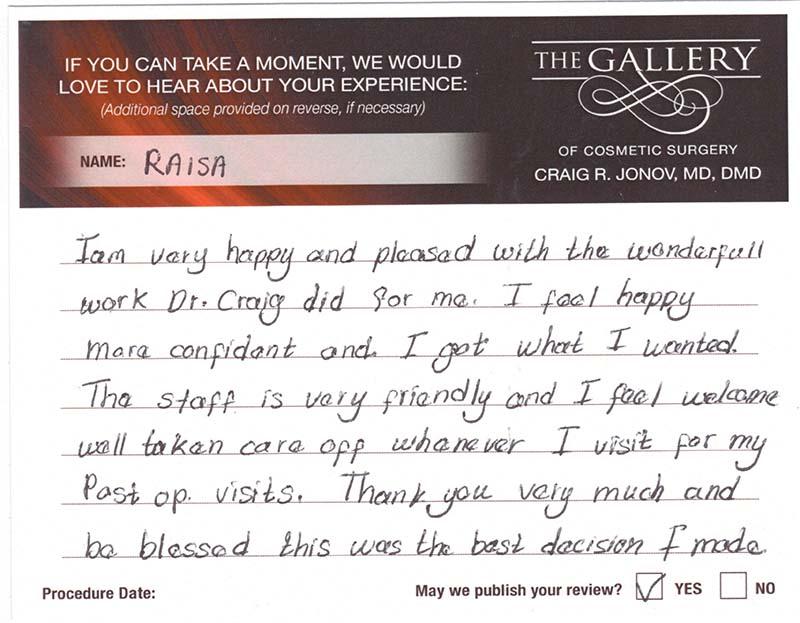 IF YOU CAN TAKE A MOMENT, WE WOULD
LOVE TO HEAR ABOUT YOUR EXPERIENCE:
(Additional space provided on reverse, if necessary)
NAME: RAISA
THE GALLERY
OF COSMETIC SURGERY
CRAIG R. JONOV, MD, DMD
I am very happy and pleased with the wonderfull
work Dr. Craig did for me. I feel happy
more confident and. I got what I wanted.
The staff is very friendly and I feel welcome
well taken care off whenever I visit for my
Post op. visits. Thank you very much and
be blessed this was the best decision I made.
Procedure Date:
May we publish your review? YES NO